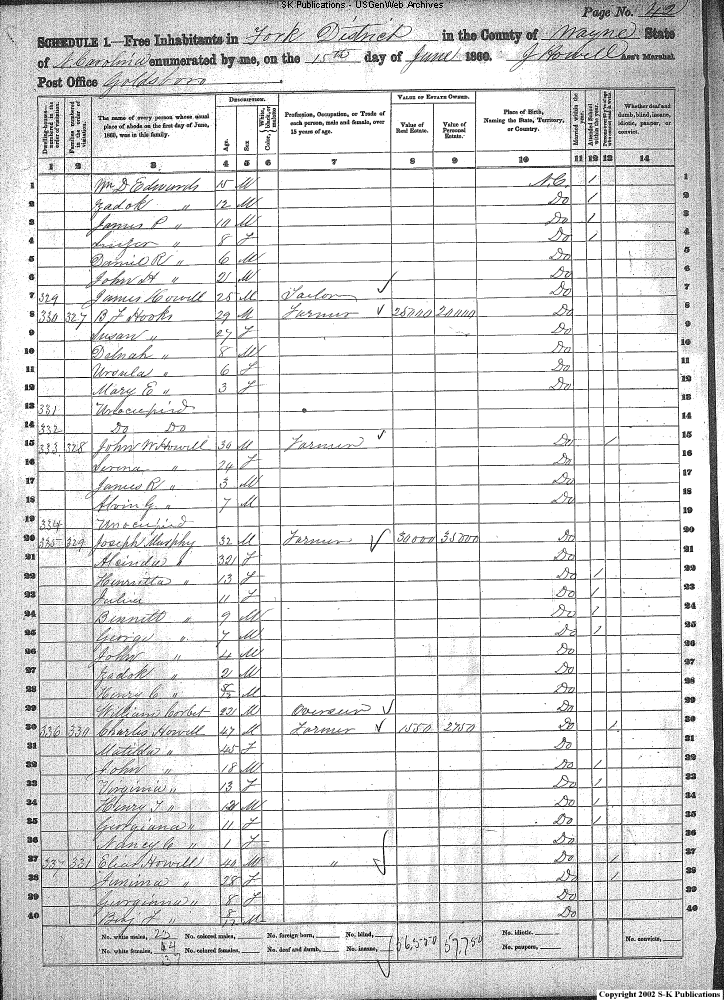 S-K Publications - USGenWeb Archives
Page No. 42
SCHEDULE 1.—Free Inhabitants in Fork District in the County of Wayne State
of N. Carolina enumerated by me, on the 15th day of June 1860. J Howell Ass't Marshal.
Post Office Goldsboro.
Dwelling-houses—numbered in the order of visitation.
Families numbered in the order of visitation.
The name of every person whose usual place of abode on the first day of June, 1860, was in this family.
DESCRIPTION.
Age.
Sex.
Color, White, black, or mulatto.
Profession, Occupation, or Trade of each person, male and female, over 15 years of age.
VALUE OF ESTATE OWNED.
Value of Real Estate.
Value of Personal Estate.
Place of Birth, Naming the State, Territory, or Country.
Married within the year.
Attended School within the year.
Whether deaf and dumb, blind, insane, idiotic, pauper, or convict.
1 2 3 4 5 6 7 8 9 10 11 12 13 14
1 Wm D Edwards 15 M N.C. / 1
2 Zadok " 12 M Do / 2
3 James P " 10 M Do / 3
4 " 8 F Do / 4
5 Daniel R " 6 M Do 5
6 John H " 21 M Do 6
7 329 James Howell 25 M Tailor ✓ Do 7
8 330 327 B F Hooks 29 M Farmer ✓ 25000 20000 Do 8
9 Susan " 27 F Do 9
10 " 8 M Do 10
11 Ursula " 6 F Do 11
12 Mary E " 3 F Do 12
13 331 Unoccupied 13
14 332 Do Do 14
15 333 328 John W Howell 34 M Farmer ✓ Do / 15
16 " 24 F Do 16
17 James R " 3 M Do 17
18 Alvin G. " 7 M Do 18
19 334 Unoccupied 19
20 335 329 Joseph Murphy 32 M Farmer ✓ 30000 35000 Do 20
21 " F Do 21
22 Henrietta " 13 F Do / 22
23 Julia 11 F Do / 23
24 Bennitt " 9 M Do / 24
25 George " 7 M Do / 25
26 John " 4 M Do 26
27 Zadok " 2 M Do 27
28 Henry C " 8/12 M Do 28
29 William Corbet 221 M Overseer ✓ Do 29
30 336 330 Charles Howell 47 M Farmer ✓ 1550 2750 Do / 30
31 Matilda " 45 F Do 31
32 John " 18 M Do / 32
33 Virginia " 13 F Do / 33
34 Henry T " M Do / 34
35 Georgiana " 11 F Do / 35
36 Nancy C " 1 F Do 36
37 337 331 Elias Howell 40 M " ✓ Do / 37
38 " 28 F Do / 38
39 Georgianna " 8 F Do 39
40 " 8/12 M Do 40
No. white males, 23 No. colored males, No. foreign born, No. blind, 56,550 57,750 No. idiotic, No. convicts,
No. white females, 14 No. colored females, No. deaf and dumb, No. insane, No. paupers,
37
Copyright 2002 S-K Publications